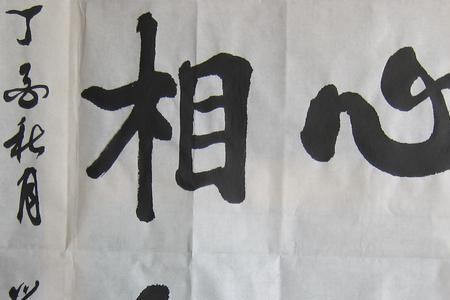 心
相
丁亥秋月